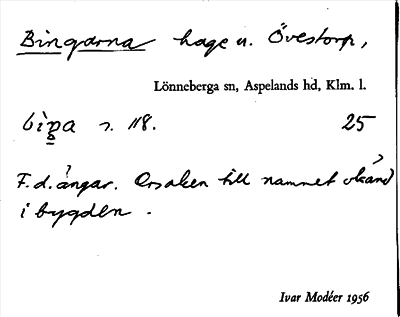 Bingarna hage u. Övestorp,
Lönneberga sn, Aspelands hd, Klm. l.
25
F.d. ängar. Orsaken till namnet okänd
i bygden.
Ivar Modéer 1956